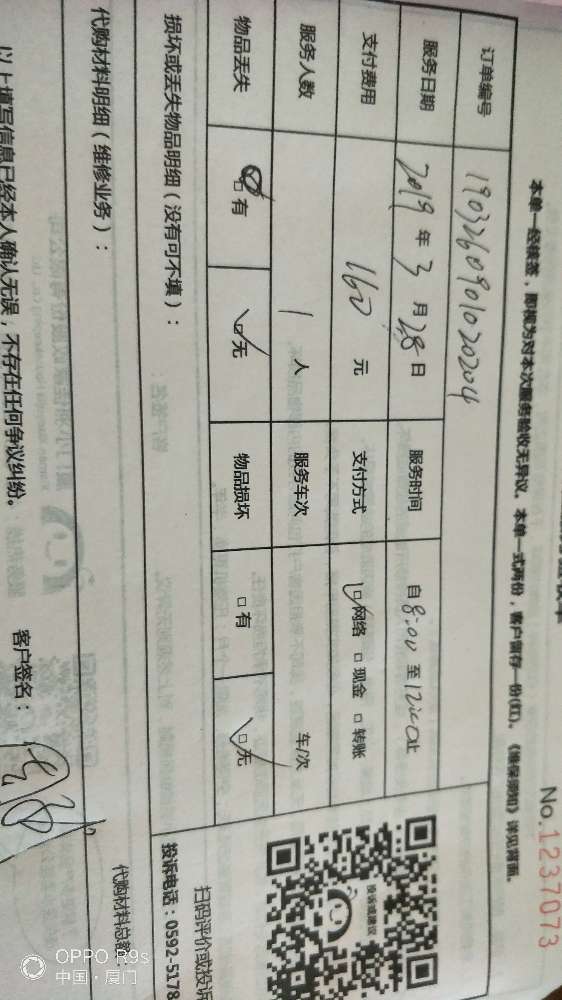 No.1237073
本单一经核签，即视为对本次服务验收无异议。本单一式两份，客户留存一份(红)。《维保须知》详见背面。
订单编号 1903260901020204
服务日期 2019年3月28日 服务时间 自8:00至12:00止
支付费用 160元 支付方式 ☑网络 □现金 □转账
服务人数 1人 服务车次 车/次
物品丢失 □有 ☑无 物品损坏 □有 ☑无
损坏或丢失物品明细（没有可不填）：
代购材料明细（维修业务）：
代购材料总额：
投诉或建议
扫码评价或投诉
投诉电话：0592-5178
以上填写信息已经本人确认无误，不存在任何争议纠纷。
客户签名：
OPPO R9s
中国·厦门